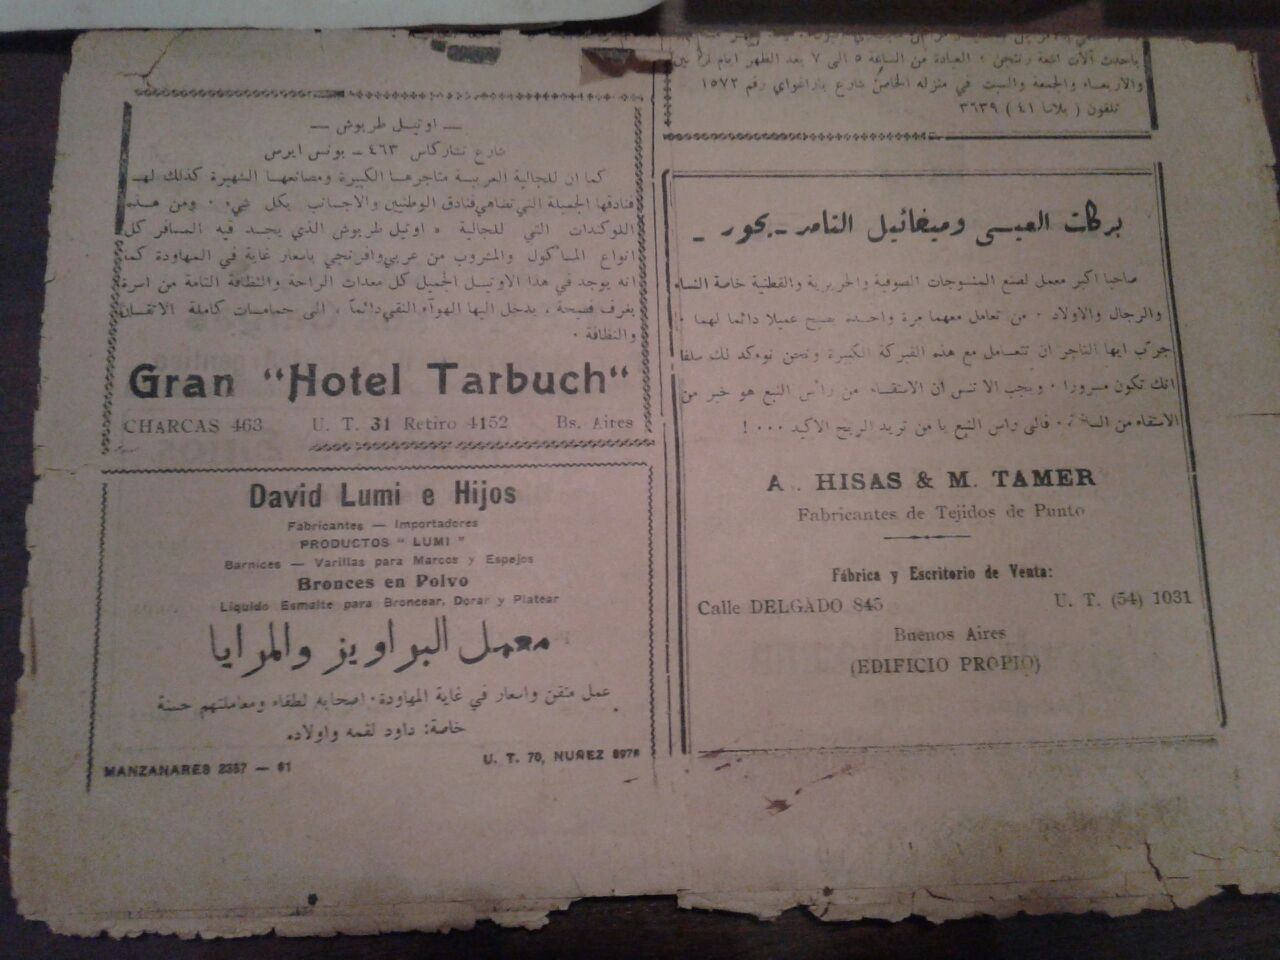 باحدث آلات اشعة رنتجن . العيادة من الساعة ٥ الى ٧ بعد الظهر ايام
والاربعاء والجمعة والسبت في منزله الخاص شارع باراغواي رقم ١٥٧٢
تلفون ( بلاتا ٤١ ) ٣٦٣٩
— اوتيل طربوش —
شارع تشاركاس ٤٦٣ - بونس ايرس
كما ان للجالية العربية متاجرها الكبيرة ومصانعها الشهيرة كذلك لها
فنادقها الجميلة التي تضاهي فنادق الوطنيين والاجانب بكل شيء . ومن هذه
اللوكندات التي للجالية « اوتيل طربوش الذي يجد فيه المسافر كل
انواع المأكول والمشروب من عربي وافرنجي باسعار غاية في المهاودة كما
انه يوجد في هذا الاوتيل الجميل كل معدات الراحة والنظافة التامة من اسرة
بغرف فسيحة ، يدخل اليها الهوآء النقي دائماً ، الى حمامات كاملة الاتقان
والنظافة .
Gran "Hotel Tarbuch"
CHARCAS 463 U. T. 31 Retiro 4152 Bs. Aires
David Lumi e Hijos
Fabricantes — Importadores
PRODUCTOS " LUMI "
Barnices — Varillas para Marcos y Espejos
Bronces en Polvo
Líquido Esmalte para Broncear, Dorar y Platear
معمل البراويز والمرايا
عمل متقن واسعار في غاية المهاودة . اصحابه لطفاء ومعاملتهم حسنة
خاصة: داود لقمه واولاده
MANZANARES 2357 — 61 U. T. 70, NUÑEZ 8976
بركات العيسى وميخائيل التامر -
صاحبا اكبر معمل لصنع المنسوجات الصوفية والحريرية والقطنية خاصة النساء
والرجال والاولاد . من تعامل معهما مرة واحدة يصبح عميلا دائما لهما .
جرّب ايها التاجر ان تتعامل مع هذه الشركة الكبيرة ونحن نوءكد لك سلفا
انك تكون مسرورا . ويجب الا تنس ان الاستقاء من رأس النبع هو خير من
الاستقاء من الساقية . فالى راس النبع يا من تريد الربح الاكيد ... !
A. HISAS & M. TAMER
Fabricantes de Tejidos de Punto
Fábrica y Escritorio de Venta:
Calle DELGADO 845 U. T. (54) 1031
Buenos Aires
(EDIFICIO PROPIO)